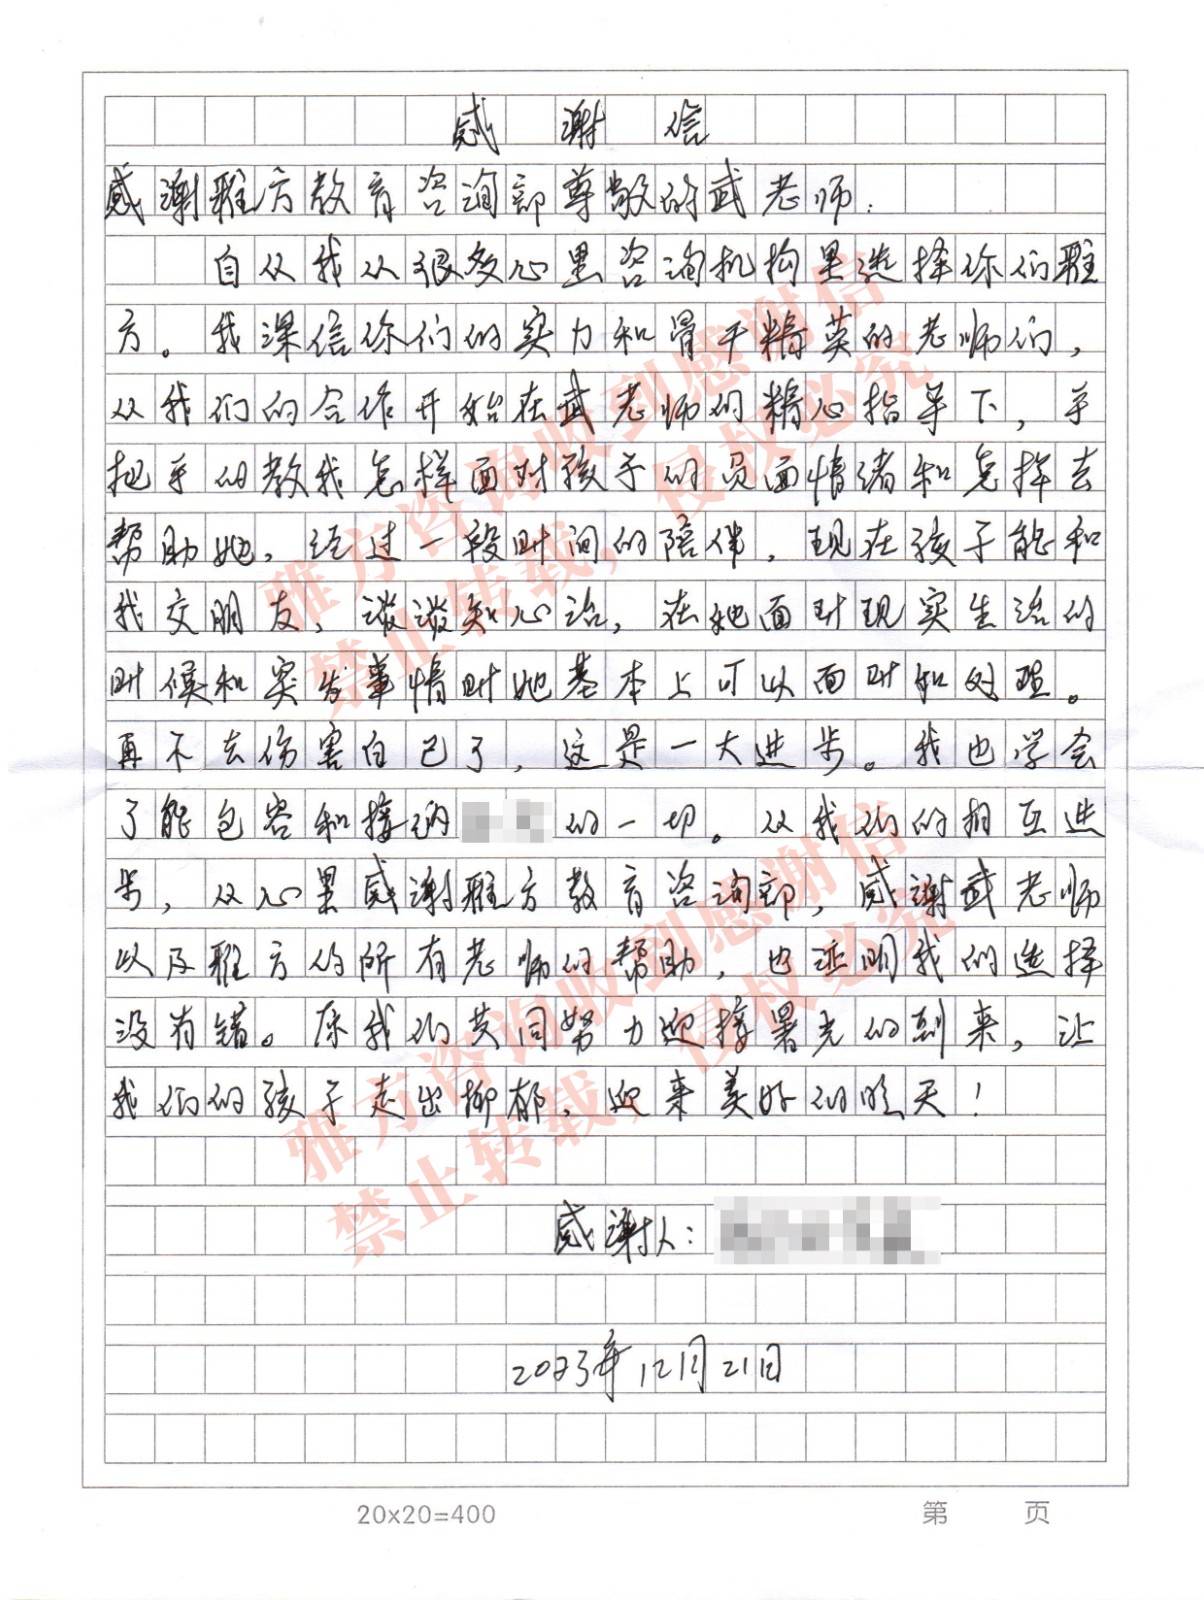 感谢信
感谢雅方教育咨询部尊敬的武老师：
自从我从很多心里咨询机构里选择你们雅
方。我深信你们的实力和骨干精英的老师们，
从我们的合作开始在武老师的精心指导下，手
把手的教我怎样面对孩子的负面情绪和怎样去
帮助她，经过一段时间的陪伴，现在孩子能和
我交朋友，谈谈知心话，在她面对现实生活的
时候和突发事情时她基本上可以面对和处理。
再不去伤害自己了，这是一大进步。我也学会
了能包容和接纳 的一切。从我们的相互进
步，从心里感谢雅方教育咨询部，感谢武老师
以及雅方的所有老师的帮助，也证明我们选择
没有错。愿我们共同努力迎接曙光的到来，让
我们的孩子走出抑郁，迎来美好的明天！
感谢人：
2023年12月21日
20x20=400 第 页
雅方咨询收到感谢信
禁止转载，侵权必究
雅方咨询收到感谢信
禁止转载，侵权必究